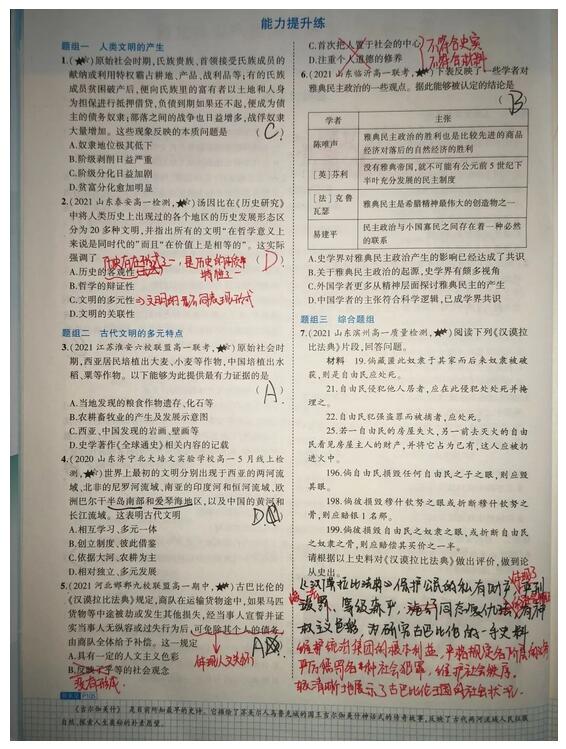 能力提升练
题组一 人类文明的产生
1.(★☆)原始社会时期,氏族贵族、首领接受氏族成员的
献纳或利用特权霸占耕地、产品、战利品等;有的氏族
成员贫困破产后,便向民族里的富有者以土地和人身
为担保进行抵押借贷,负债到期如果还不起,便成为债
主的债务奴隶;部落之间的战争也日益增多,战俘奴隶
大量增加。这些现象反映的本质问题是 ( C )
A.奴隶地位极其低下
B.阶级剥削日益严重
C.阶级分化日益加剧
D.贫富分化愈加明显
2.(2021山东泰安高一检测,★☆)汤因比在《历史研究》
中将人类历史上出现过的各个地区的历史发展形态区
分为20多种文明,并指出所有的文明“在哲学意义上
来说是同时代的”而且“在价值上是相等的”。这实际
强调了 ( D )
A.历史的客观性
B.哲学的辩证性
C.文明的多元性
D.文明的关联性
题组二 古代文明的多元特点
3.(2021江苏淮安六校联盟高一联考,★☆)原始社会时
期,西亚居民培植出大麦、小麦等作物,中国培植出水
稻、粟等作物。以下能够为此提供最有力证据的是
( A )
A.当地发现的粮食作物遗存、化石等
B.农耕畜牧业的产生及发展示意图
C.西亚、中国发现的岩画、壁画等
D.史学著作《全球通史》相关内容的记载
4.(2020山东济宁北大培文实验学校高一5月线上检
测,★☆)世界上最初的文明分别出现于西亚的两河流
域、北非的尼罗河流域、南亚的印度河和恒河流域、欧
洲巴尔干半岛南部和爱琴海地区,以及中国的黄河和
长江流域。这表明古代文明
A.相互学习、多元一体
B.创立制度、彼此借鉴
C.依据大河、农耕为主
D.相对独立、多元发展
5.(2021河北邯郸九校联盟高一期中,★☆)古巴比伦的
《汉谟拉比法典》规定,商队在运输货物途中,如果马匹
货物等中途被劫或发生其他损失,经过当事人宣誓并证
实当事人无纵容或过失行为后,可免除其个人的债务,
由商队全体给予补偿。这一规定
A.具有一定的人文主义色彩
B.反映了平等的社会观念
C.首次把人置于社会的中心
D.注重个人道德的修养
6.(2021山东临沂高一联考,★☆)下表反映了一些学者对
雅典民主政治的一些观点。据此能够被认定的结论是
( B )
学者 主张
陈唯声 雅典民主政治的胜利也是比较先进的商品
经济对落后的自然经济的胜利
[英]芬利 没有雅典帝国,就不可能有公元前5世纪下
半叶充分发展的民主制度
[法]克鲁
瓦瑟 雅典民主是希腊精神最伟大的创造物之一
易建平 民主政治与小国寡民之间存在着一种必然
的联系
A.史学界对雅典民主政治产生的影响已经达成了共识
B.关于雅典民主政治的起源,史学界有颇多视角
C.外国学者更多从精神层面探讨雅典民主的产生
D.中国学者的主张符合科学逻辑,已成学界共识
题组三 综合题组
7.(2021山东滨州高一质量检测,★☆)阅读下列《汉谟拉
比法典》片段,回答问题。
材料 19.倘藏匿此奴隶于其家而后来奴隶被破
获,则是自由民应处死。
21.自由民侵犯他人居者,应在此侵犯处处死并掩
埋之。
22.自由民犯强盗罪而被捕者,应处死。
25.若一自由民的房屋失火,另一前去灭火的自由
民看见房屋主人的财产,并将它占为己有,这人应被扔
进火中。
196.倘自由民损毁任何自由民之子之眼,则应毁
其眼。
198.倘彼损毁穆什钦努之眼或折断穆什钦努之
骨,则应赔银1名那。
199.倘彼损毁自由民之奴隶之眼,或折断自由民
之奴隶之骨,则应赔偿其买价之一半。
请根据以上史料对《汉谟拉比法典》做出评价,做到论
从史出。
《吉尔伽美什》 是目前所知最早的史诗。它描绘了苏美尔人乌鲁克城的国王吉尔伽美什神话式的传奇故事,反映了古代两河流域人民征服
自然、探索人生奥秘的朴素愿望。